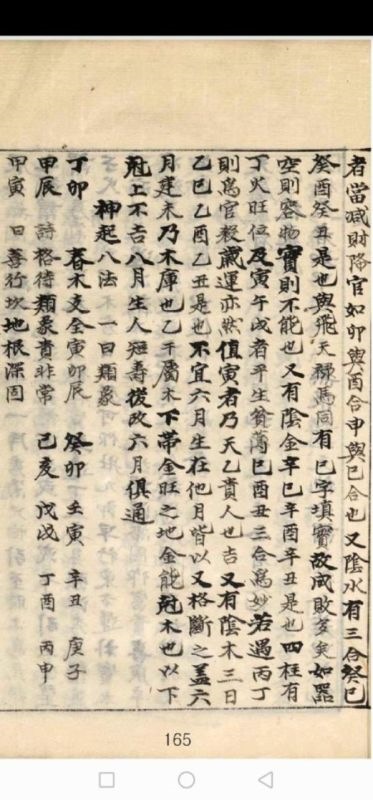 者當减財降官如卯與酉合申與巳合也又陰水有三合癸巳
癸酉癸丑是也與飛天祿馬同有巳字填實故成敗多矣如器
空則容物實則不能也又有陰金辛巳辛酉辛丑是也四柱有
丁火旺位及寅午戌者平生貧薄巳酉丑三合為妙若遇丙丁
則為官殺歲運亦然值寅者乃天乙貴人也吉又有陰木三日
乙巳乙酉乙丑是也不宜六月生在他月皆以又格斷之盖六
月建未乃木庫也乙干屬木下帶金旺之地金能尅木也以下
尅上不吉八月生人短壽後改六月俱通
神起八法木一曰類象
丁卯 春木支全寅卯辰 癸卯 壬寅 辛丑 庚子
甲辰 詩格待類象貴非常 己亥 戊戌 丁酉 丙申
甲寅 日善行坎地根深固
165